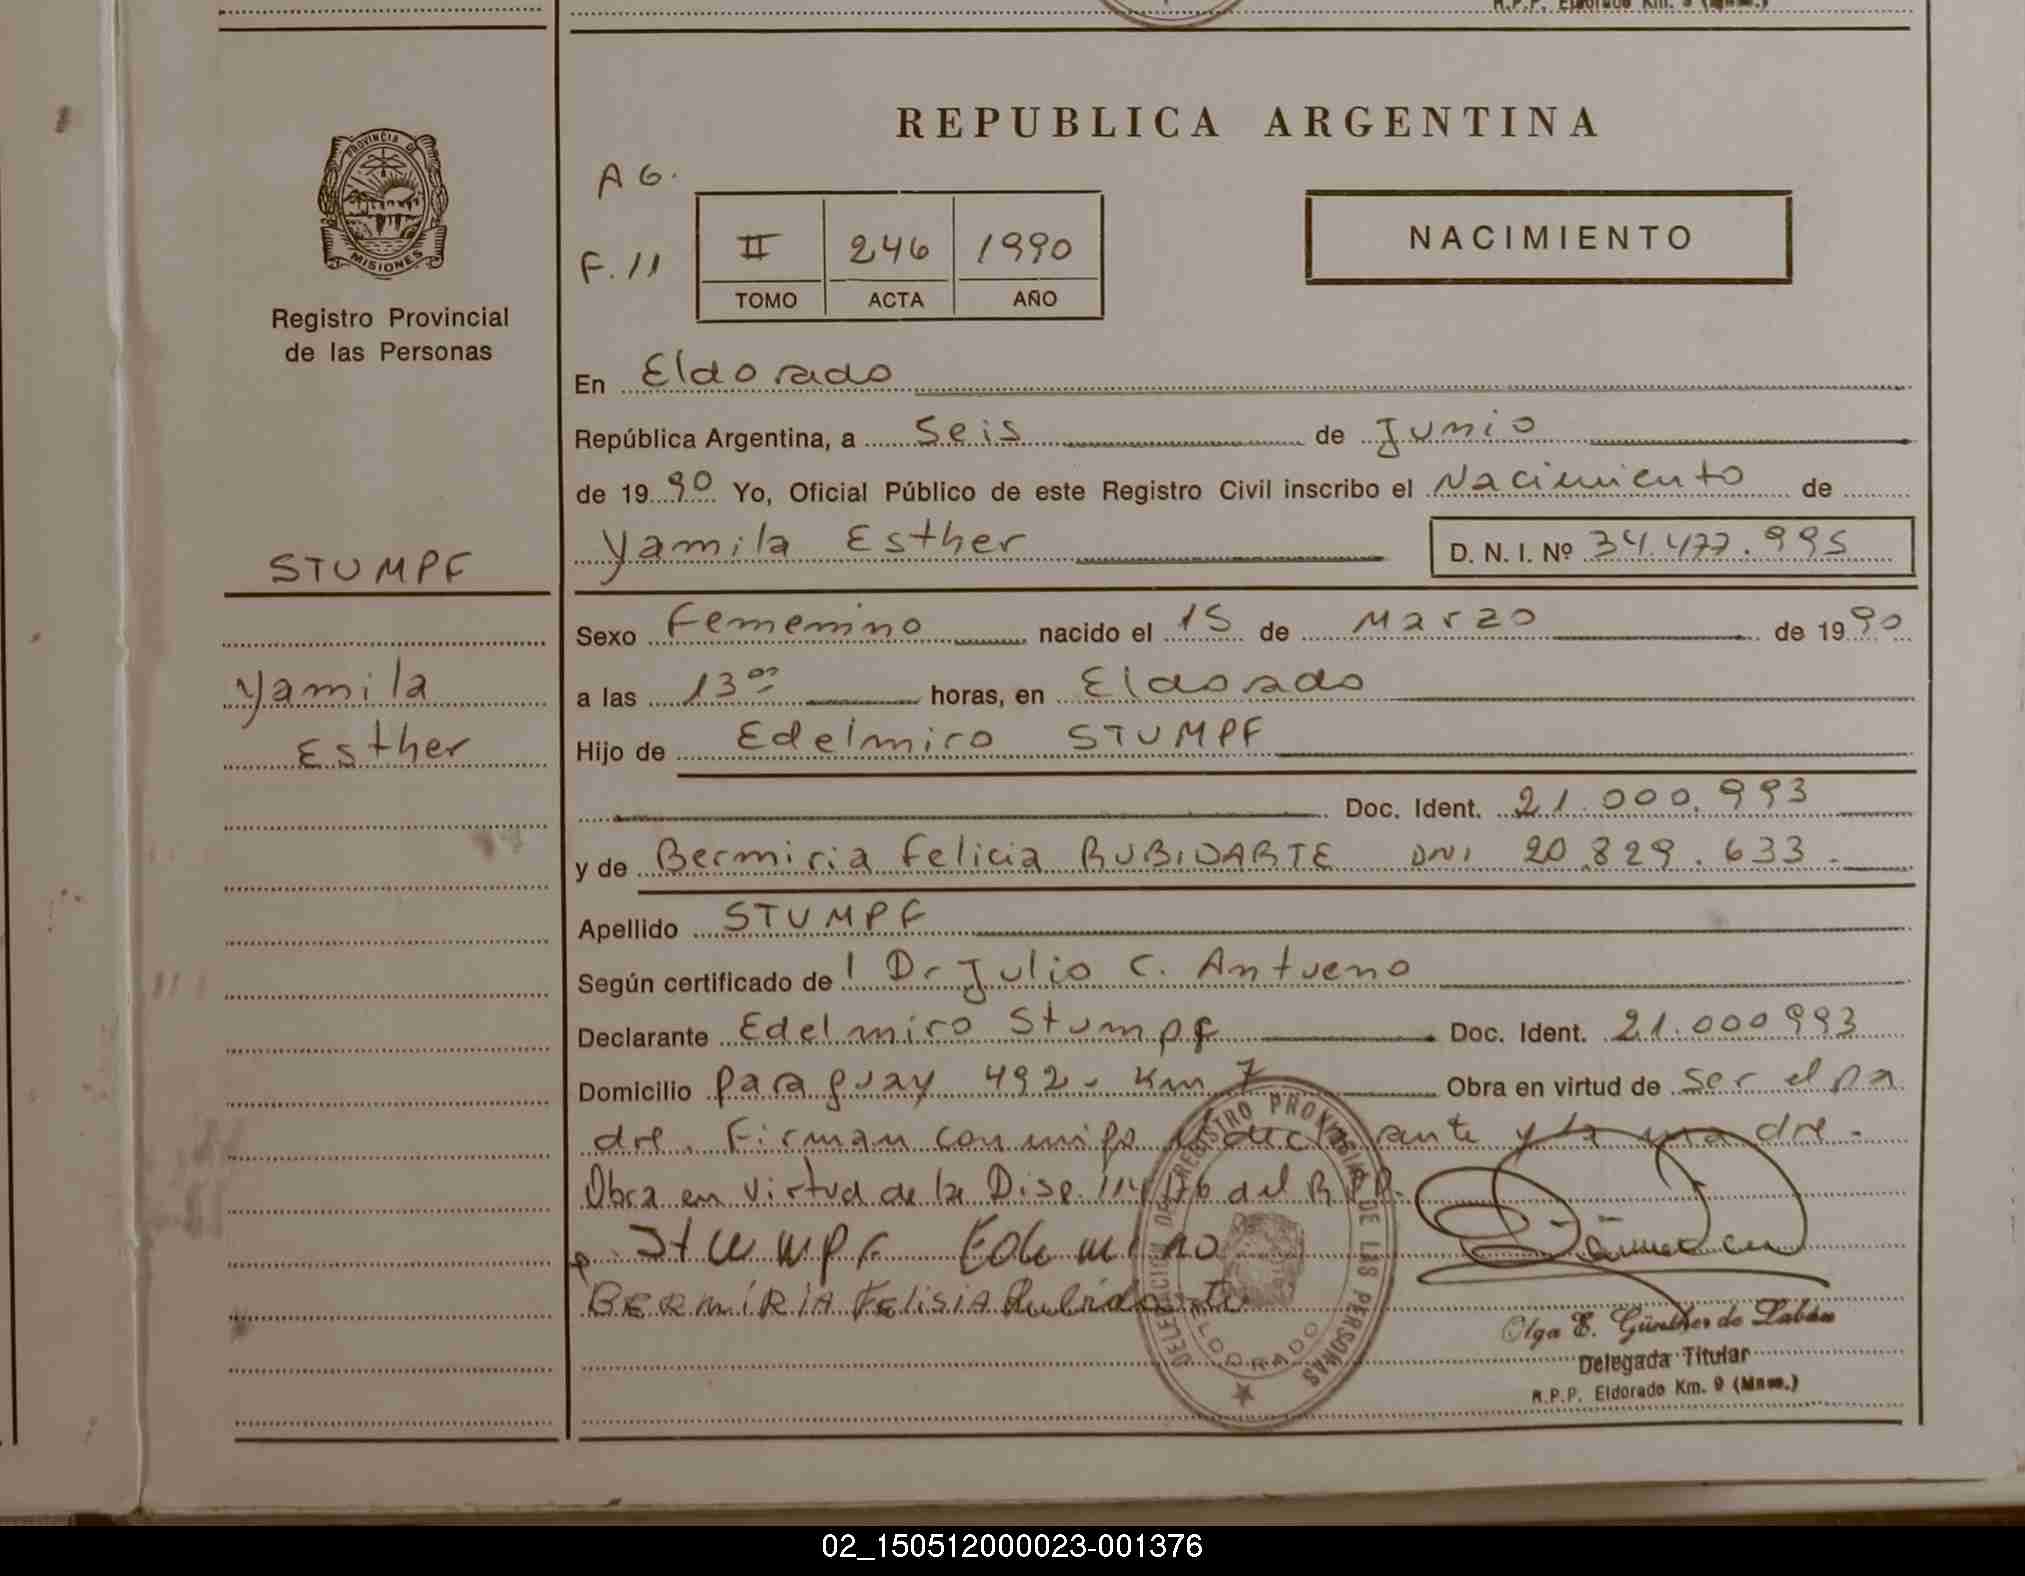 R.P.P. Eldorado Km. 9 (Mnes.)
PROVINCIA DE
MISIONES
Registro Provincial
de las Personas
STUMPF
Yamila
Esther
REPUBLICA ARGENTINA
A G.
F. 11
II 246 1990
TOMO ACTA AÑO
NACIMIENTO
En Eldorado
República Argentina, a Seis de Junio
de 1990 Yo, Oficial Público de este Registro Civil inscribo el Nacimiento de
Yamila Esther D. N. I. Nº 34.477.995
Sexo Femenino nacido el 15 de Marzo de 1990
a las 13 00 horas, en Eldorado
Hijo de Edelmiro STUMPF
Doc. Ident. 21.000.993
y de Bermiria Felicia RUBIDARTE DNI 20.829.633.
Apellido STUMPF
Según certificado de l Dr Julio C. Antueno
Declarante Edelmiro Stumpf Doc. Ident. 21.000993
Domicilio Paraguay 492 - Km 7 Obra en virtud de ser el pa
dre. Firman conmigo el declarante y la madre.-
Obra en virtud de la Disp. 114/76 del R.P.P.
Stumpf Edelmiro
BERMIRIA FELISIA Rubidarte
DELEGACION DE REGISTRO PROVINCIAL DE LAS PERSONAS
ELDORADO
Olga E. Günther de Labán
Delegada Titular
R.P.P. Eldorado Km. 9 (Mnes.)
02_150512000023-001376